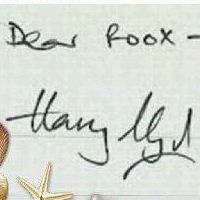 Dear Roox -
Harry